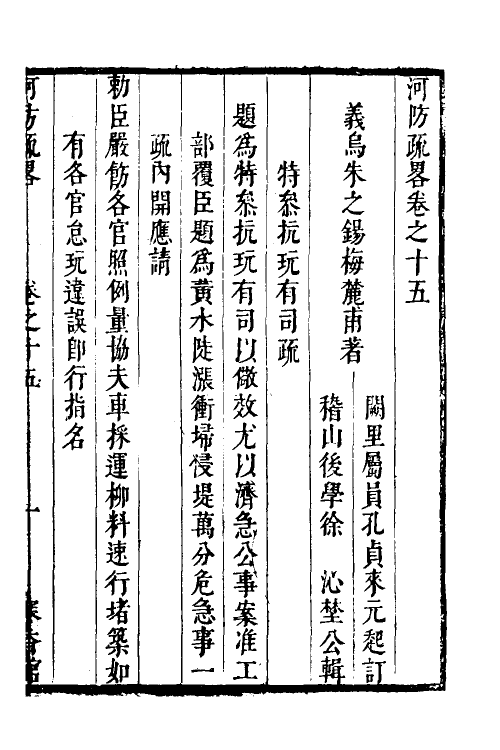 河防疏畧卷之十五
闕里屬員孔貞來元起訂
義烏朱之錫梅麓甫著
稽山後學徐　沁埜公輯
特叅抗玩有司疏
題為特叅抗玩有司以儆效尤以濟急公事案准工
部覆臣題為黃水陡漲衝埽侵堤萬分危急事一
疏內開應請
勅臣嚴飭各官照例量協夫車採運柳料速行堵築如
有各官怠玩違誤即行指名
河防疏畧　卷之十五　一